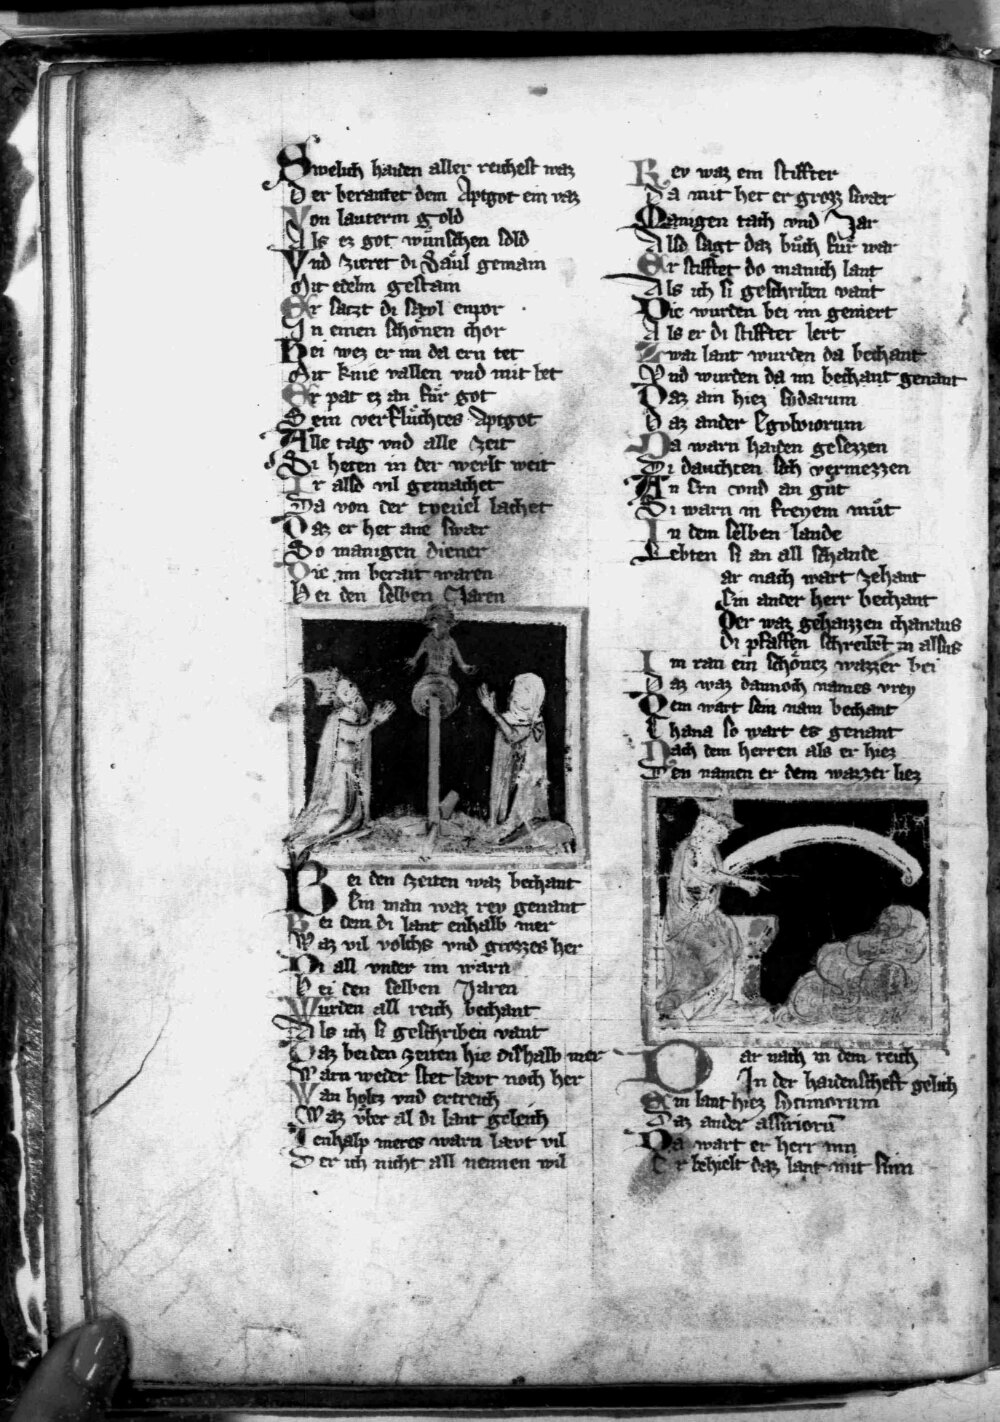 Swelich haiden aller reichest waz
Der berautet dem Aptgot ein vaz
Von lauterm gold
Als ez got wunschen sold
Vnd zieret di Saul gemain
Mit edelm gestain
Er satzt di sawl enpor
In einen schonen chor
Bei wez er im da ern tet
Mit knie vallen vnd mit bet
Er pat ez an fur got
Sein verfluchtes Aptgot
Alle tag vnd alle zeit
Si heten in der werlt weit
Ir also vil gemachet
Da von der tyeuel lachet
Daz er het ane swær
So manigen diener
Die im berait waren
Bei den selben Jaren
Bei den zeiten waz bechant
Ein man waz rey genant
Bei dem di lant enhalb mer
Waz vil volchs vnd grozzes her
Di all vnder im warn
Bei den selben Jaren
Wurden all reich bechant
Als ich si geschriben vant
Daz bei den zeiten hie dishalb mer
Warn weder stet lævt noch her
Wan holtz vnd ertreich
Waz vber al di lant geleich
Jenhalp meres warn lævt vil
Der ich nicht all nennen wil
Rey waz ein stiffter
Da mit het er grozz swær
Manigen tach vnd Jar
Also sagt daz buch fur war
Er stifftet do manich lant
Als ich si geschriben vant
Die wurden bei im gemert
Als er di stiffter lert
Zwai lant wurden da bechant
Vnd wurden da im bechant genant
Daz ain hiez sydarum
Daz ander Egylviorum
Da warn haiden gesezzen
Di dauchten sich vermezzen
An ern vnd an gut
Si warn in freyem mut
In dem selben lande
Lebten si an all schande
ar nach wart zehant
Ein ander herr bechant
Der waz gehaizzen chanaus
Di pfaffen schreibent in alsus
Im ran ein schonez wazzer bei
Daz waz dannoch names vrey
Dem wart sein nam bechant
Chana so wart es genant
Nach dem herren als er hiez
Den namen er dem wazzer liez
Dar nach in dem reich
In der haidenscheft gelich
Ein lant hiez Scimorum
Daz ander assirioru̅
Da wart er herr inn
Er behielt daz lant mit sinn